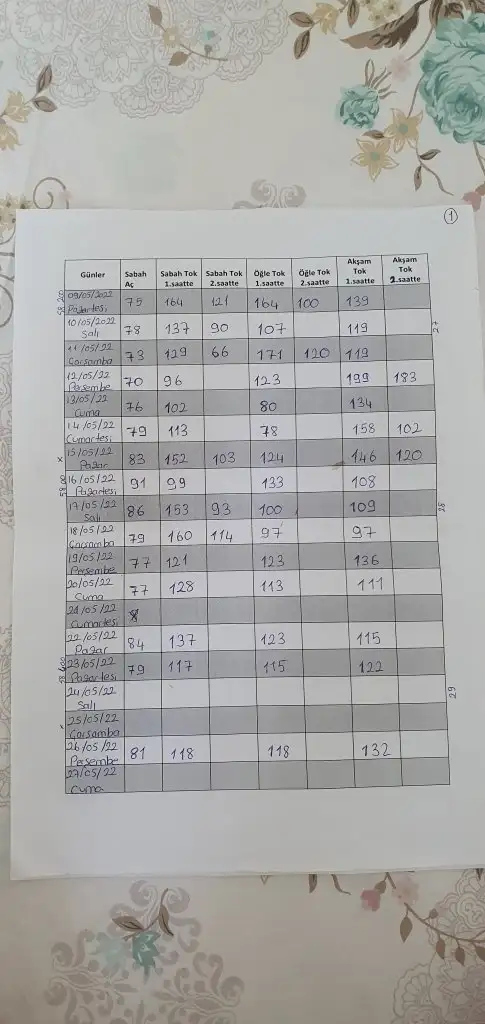 1
Günler Sabah Aç Sabah Tok 1.saatte Sabah Tok 2.saatte Öğle Tok 1.saatte Öğle Tok 2.saatte Akşam Tok 1.saatte Akşam Tok 2.saatte
58 200
09/05/2022 Pazartesi 75 164 121 164 100 139
10/05/2022 Salı 78 137 90 107 119
27
11/05/22 Çarşamba 73 129 66 171 120 119
12/05/22 Perşembe 70 96 123 199 183
13/05/22 Cuma 76 102 80 134
14/05/22 Cumartesi 79 113 78 158 102
x 15/05/22 Pazar 83 152 103 124 146 120
16/05/22 Pazartesi 91 99 133 108
17/05/22 Salı 86 153 93 100 109
28
18/05/22 Çarşamba 79 160 114 97 97
19/05/22 Perşembe 77 121 123 136
20/05/22 Cuma 77 128 113 111
21/05/22 Cumartesi
22/05/22 Pazar 84 137 123 115
58 400
23/05/22 Pazartesi 79 117 115 122
24/05/22 Salı
29
x 25/05/22 Çarşamba
26/05/22 Perşembe 81 118 118 132
27/05/22 Cuma